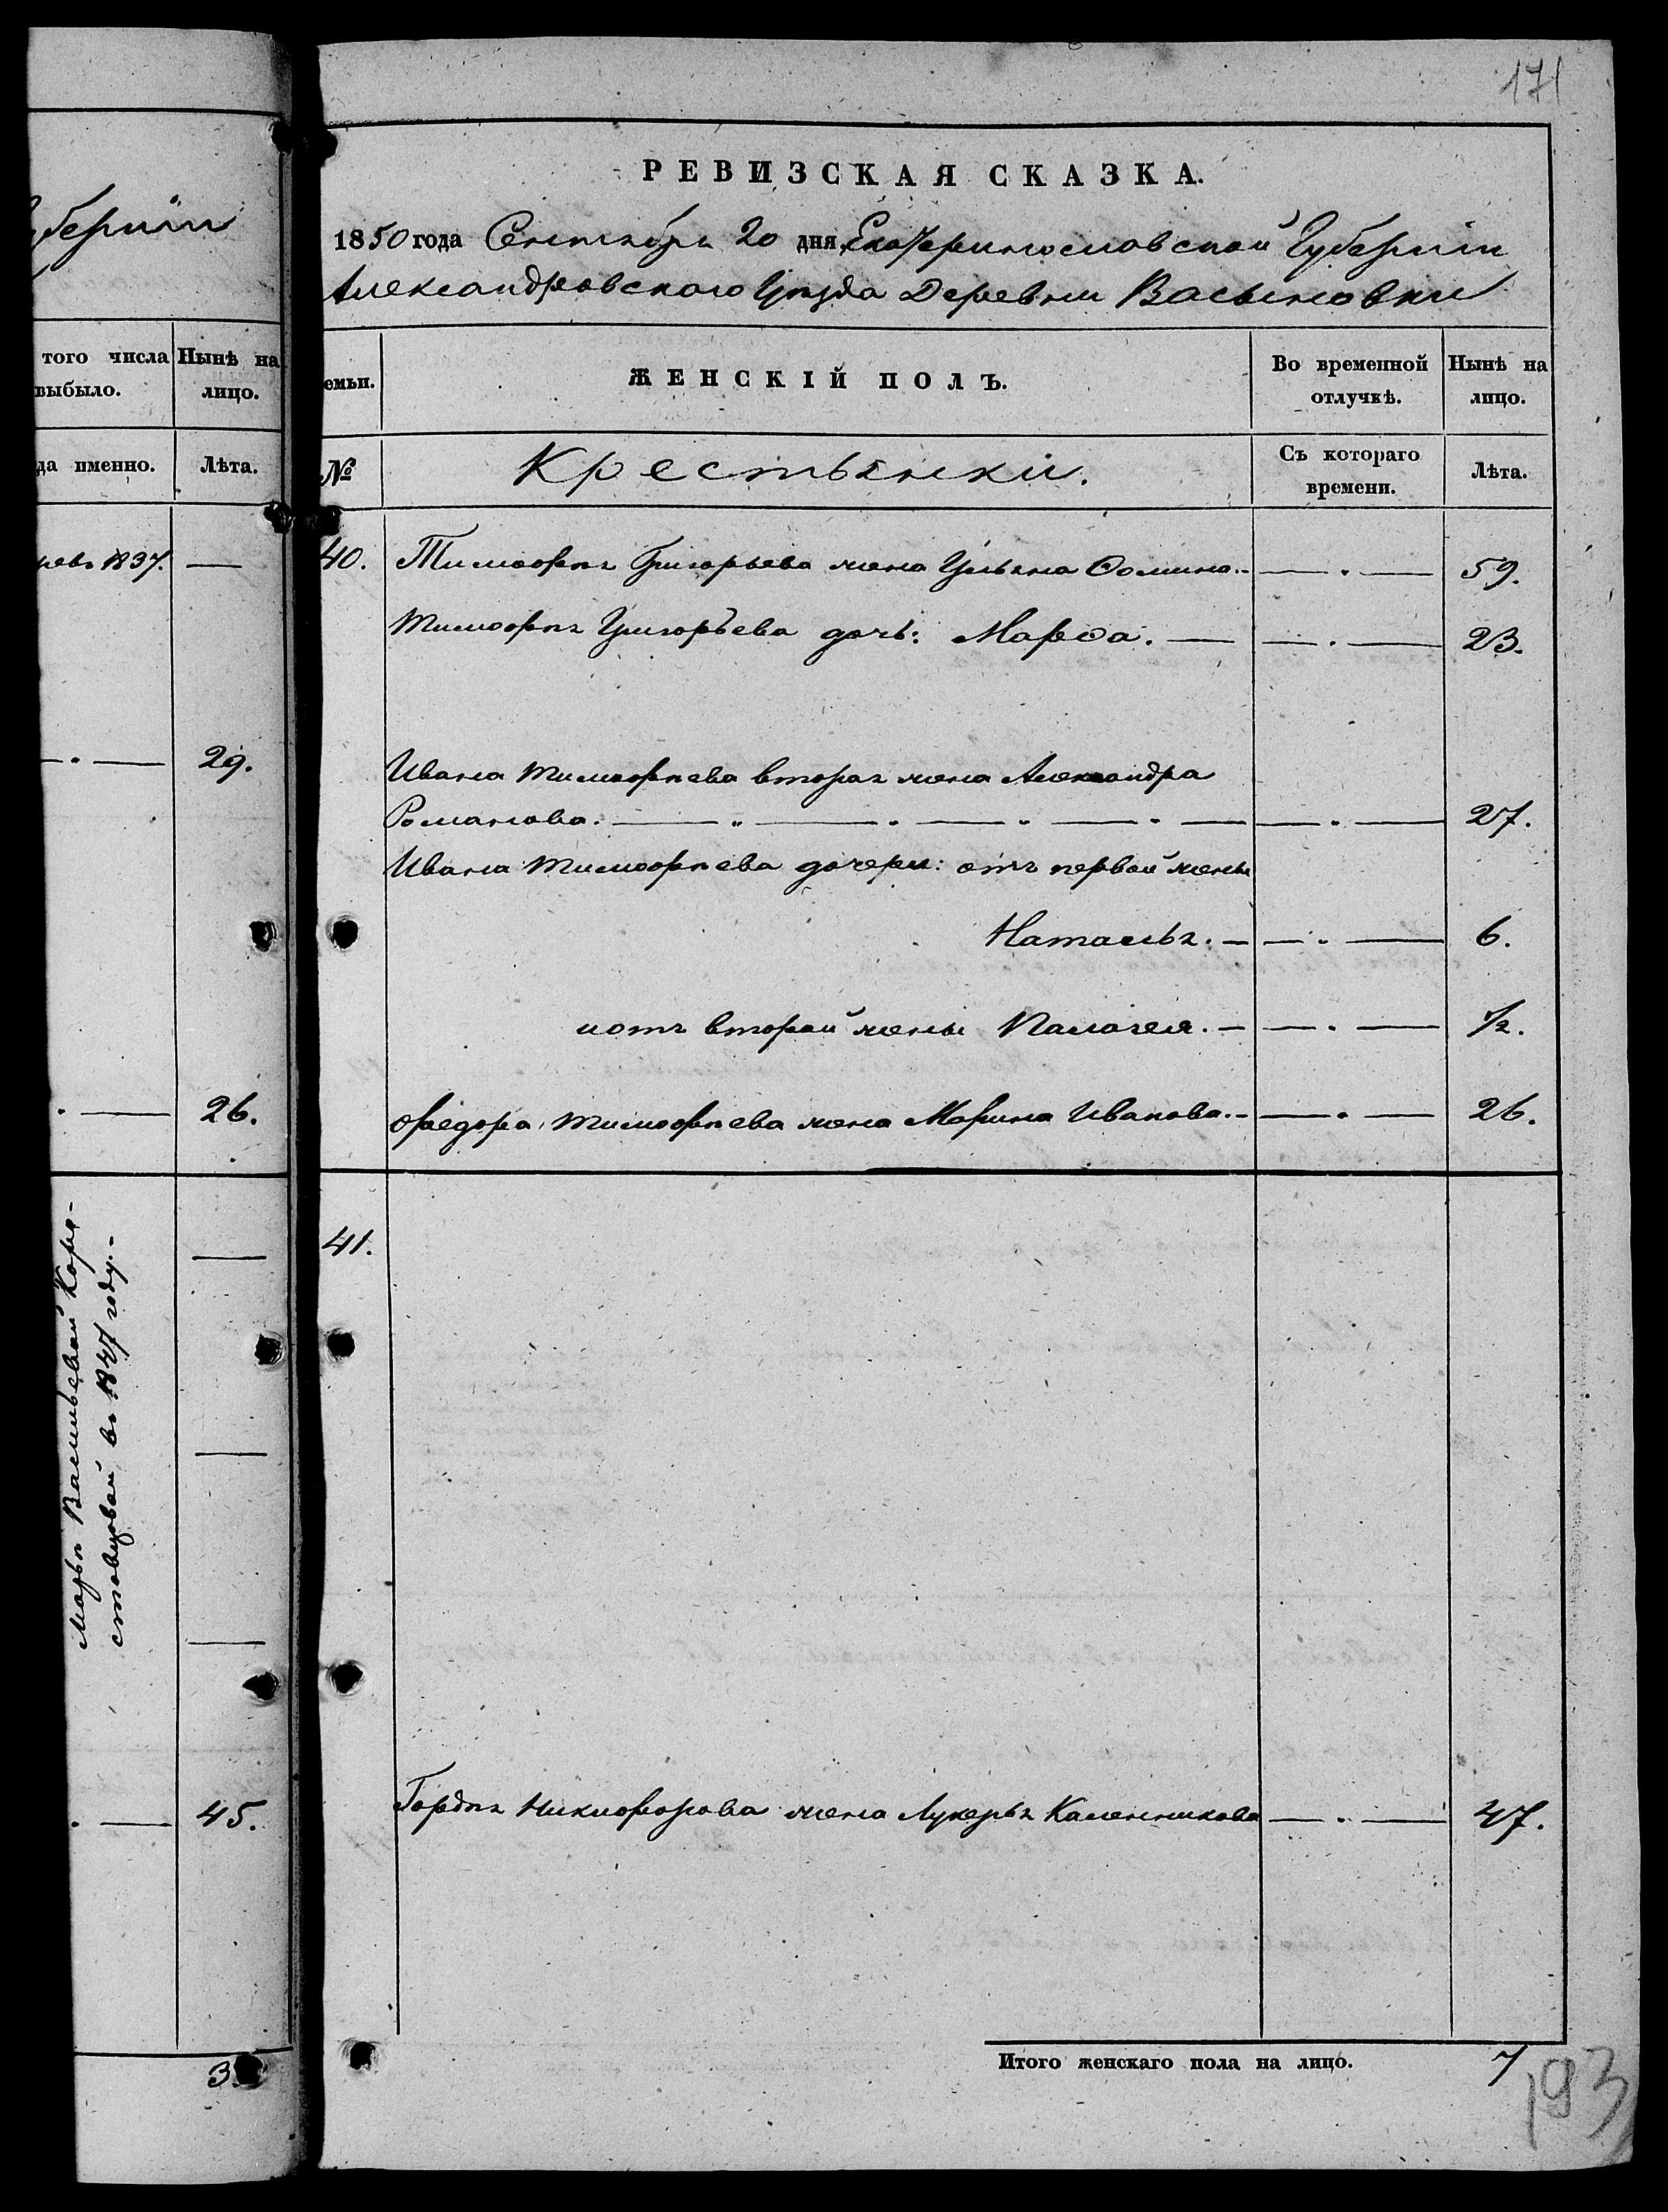 уберніи
того числа
выбыло.
Нынѣ на
лицо.
да именно.
Лѣта.
1837. —
— „ — 29.
„ — 26.
Марьи Васильевой Коро-
стовцовой въ 1847 году. —
„ — 45.
3.
171
РЕВИЗСКАЯ СКАЗКА.
1850 года Сентября 20 дня Екатеринославской Губерніи
Александровского Уѣзда Деревни Васьиновки
семьи.
ЖЕНСКІЙ ПОЛЪ.
Во временной
отлучкѣ.
Нынѣ на
лицо.
№
Крестьянки.
Съ котораго
времени.
Лѣта.
40. Тимофѣя Григорьева жена Ульяна Ѳомина. — „ — 59.
Тимофѣя Григорьева дочь: Марѳа. — — „ — 23.
Ивана Тимофѣева вторая жена Александра
Романова. — „ — „ — „ — „ — — „ — 27.
Ивана Тимофѣева дочери: отъ первой жены
Наталья. — — „ — 6.
и отъ второй жены Палагея. — — „ — 1/2.
Федора Тимофѣева жена Марина Иванова. — — „ — 26.
41.
Гордѣя Никифорова жена Лукерья Каленникова — „ — 47.
Итого женскаго пола на лицо. 7
193